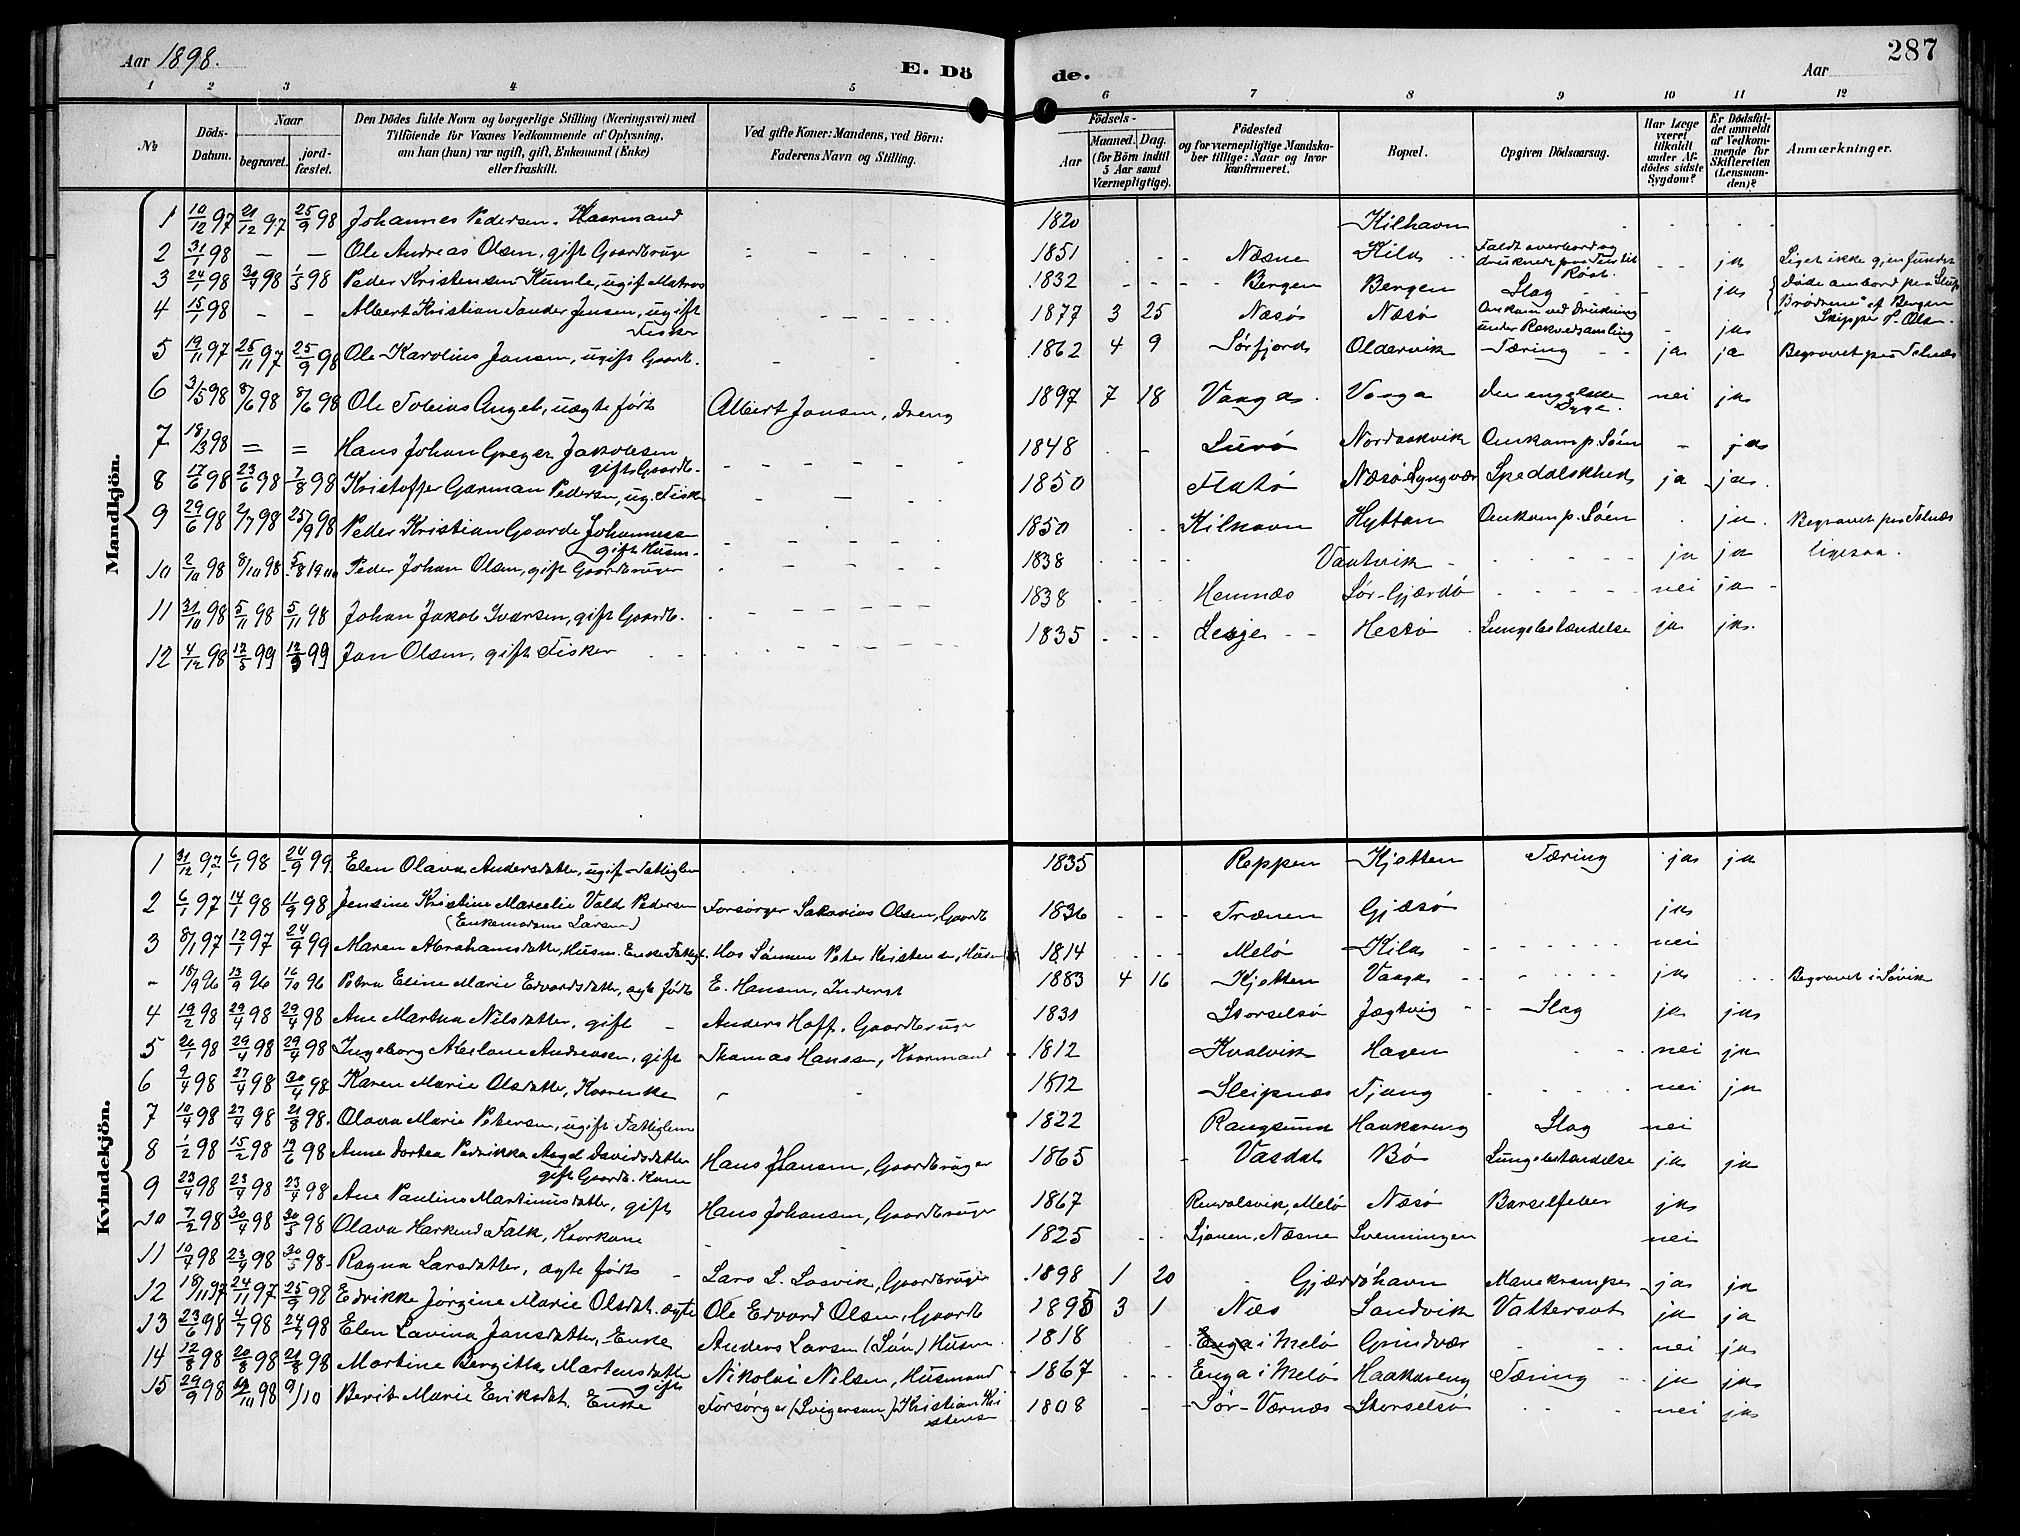 Aar 1898.
E. Dö
de.
Aar
287
1 2 3 4 5 6 7 8 9 10 11 12
№
Döds-Datum.
Naar
begravet.
jordfæstet.
Den Dödes fulde Navn og borgerlige Stilling (Næringsvei) med
Tilföiende for Voxnes Vedkommende af Oplysning,
om han (hun) var ugift, gift, Enkemand (Enke)
eller fraskilt.
Ved gifte Koner: Mandens, ved Börn:
Faderens Navn og Stilling.
Födsels-
Aar
Maaned. Dag.
(for Börn indtil
5 Aar samt
Værnepligtige).
Födested
og for værnepligtige Mandskaber tillige: Naar og hvor
konfirmeret.
Bopæl.
Opgiven Dödsaarsag.
Har Læge været tilkaldt under Afdödes sidste Sygdom?
Er Dödsfaldet anmeldt af Vedkommende for Skifteretten (Lensmanden)?
Anmærkninger.
Mandkjön.
1 10/12 97 21/12 97 25/9 98 Johannes Pedersen. Kaarmand 1820 Kilhavn
2 31/1 98 – – Ole Andreas Olsen, gift Gaardbruger 1851 Næsne Kila Faldt overbord og druknede paa Røst ja Liget ikke gjenfundet
3 24/1 98 30/4 98 1/5 98 Peder Kristensen Kumle, ugift Matros 1832 Bergen Bergen Slag ja Døde ombord paa Brødrene" af Bergen Skipper Olsen
4 15/1 98 – – Albert Kristian Sander Jensen, ugift Fisker 1877 3 25 Næsø Næsø Omkom ved Drukning under Rækvedsamling – ja
5 19/11 97 25/11 97 25/9 98 Ole Karolius Jansen, ugift Gaardb. 1862 4 9 Sørfjord Oldervik Tæring ja ja Begravet paa Telnæs
6 3/5 98 8/6 98 8/6 98 Ole Tobias Angel, uægte født Albert Jansen, dreng 1897 7 18 Vaaga Vaaga den engelske Syge. nei ja
7 18/3 98 = = Hans Johan Greger Jakobsen gift Gaardb. 1848 Lurø Nordaakvik Omkom p. Søen – ja
8 17/6 98 23/6 98 7/8 98 Kristoffer Garman Pedersen, ug. Fisker 1850 Flatø Næsø Lyngvær Spedalskhed ja ja.
9 29/6 98 2/7 98 25/9 98 Peder Kristian Gaarde Johannesse gift Husm. 1850 Kilhavn Hyttan Omkom p. Søen ja Begravet paa Telnæs
10 2/10 98 8/10 98 5/8 1900 Peder Johan Olsen, gift Gaardbruger 1838 Vaatvik ja ja ligesaa.
11 31/10 98 5/11 98 5/11 98 Johan Jakob Ivarsen, gift Gaardb. 1838 Hemnæs Sør-Gjærdø nei ja
12 4/12 98 12/5 99 12/5 99 Jan Olsen, gift Fisker 1835 Lesje Hestø Lungebetændelse ja ja.
Kvindekjön.
1 31/12 97 6/1 98 24/9 99 Elen Olava Andersdatter, ugift Fattiglem 1835 Reppen Kjotten Tæring ja ja
2 6/1 97 14/1 98 11/9 98 Jensine Kristine Marcelie Vold Pedersen (Enkemadame Larsen) Forsørger Sakarias Olsen, Gaardb 1836 Trænen Gjæsø ja
3 8/1 97 12/1 97 24/9 99 Maren Abrahamsdatter, Husm. Enke Fattigl. Hos Sønnen Peter Kristensen, Husm 1814 Melø Kila nei
– 18/9 96 13/9 96 16/10 96 Petra Eline Marie Edvardsdatter, ægte født E. Hansen, Inderst 1883 4 16 Kjotten Vaaga ja Begravet i Søvik
4 19/2 98 29/4 98 29/4 98 Ane Martha Nilsdatter, gift Anders Hoff, Gaardbruger 1831 Storselsø Jægtvig Slag ja ja
5 26/1 98 29/4 98 29/4 98 Ingeborg Abelone Andreasen, gift Thomas Hansen, Kaarmand 1812 Kvalvik Hagen nei ja
6 9/4 98 27/4 98 30/4 98 Karen Marie Olsdatter, Kaarenke 1812 Sleipnæs Tjong nei ja
7 10/4 98 27/4 98 21/8 98. Olava Marie Petersen, ugift Fattiglem 1822 Rangsund Haakaeng Slag nei
8 1/2 98 15/2 98 19/6 98 Anne Dortea Pedrikka Angel Davidsdatter gift Gaardb. Kone Hans J Hansen, Gaardbruger 1865 Vasdal Bø Lungebetændelse ja ja
9 23/4 98 23/4 98 23/4 98 Ane Pauline Martinusdatter, gift Hans Johansen, Gaardbruger 1867 Rendalsvik, Melø Næsø Barselfeber ja
10 7/2 98 30/4 98 30/5 98 Olava Harkend Falk, Kaarkone 1825 Sjonen, Næsne Svenningen nei
11 10/4 98 23/4 98 30/5 98 Ragna Larsdatter, ægte født Lars L. Losvik, Gaardbruger 1898 1 20 Gjærdøhavn Mavekrampe ja ja
12 18/11 97 24/11 97 25/9 98 Edvikke Jørgine Marie Olsdat. ægte Ole Edvard Olsen, Gaardb 1895 3 1 Næs Sandvik Vattersot ja ja
13 23/6 98 4/7 98 24/7 98 Elen Lavina Jansdatter, Enke Anders Larsen (Søn) Husm. 1818 Enga i Melø Grindvær nei ja
14 12/8 98 20/8 98 21/8 98 Martine Bergitte Martensdatter gift Nikolai Nilsen, Husmand 1867 Enga i Melø Haakaeng Tæring ja ja
15 29/9 98 98 9/10 Berit Marie Eriksdat. Enke Forsørger (Svigersøn) Kristian Kristens 1808 Sør-Værnæs Storselsø nei ja